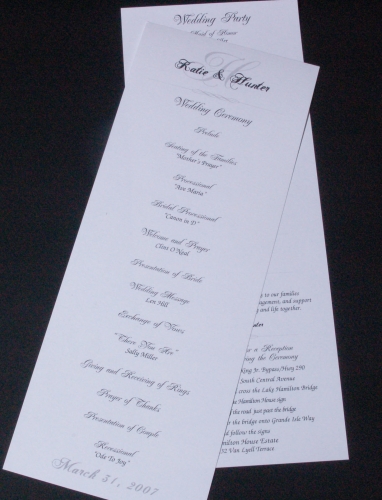 Wedding Party
Maid of Honor
M
Katie & Hunter
Wedding Ceremony
Prelude
Seating of the Families
"Mother's Prayer"
Processional
"Ave Maria"
Bridal Processional
"Canon in D"
Welcome and Prayer
Clint O'Neal
Presentation of Bride
Wedding Message
Len Hill
Exchange of Vows
Sally Miller
Giving and Receiving of Rings
Prayer of Thanks
Presentation of Couple
Recessional
"Ode To Joy"
March 31, 2007
to our families
and support
and life together.
Reception
the Ceremony
King Jr. Bypass/Hwy 290
South Central Avenue
across the Lake Hamilton Bridge
Hamilton House sign
the road just past the bridge
the bridge onto Grande Isle Way
follow the signs
Hamilton House Estate
Van Lyell Terrace